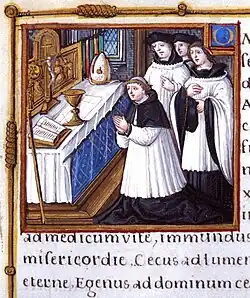 ad medicum vite, immundus
misericordie, Cecus ad lumen
eterne, Egenus ad dominum ce